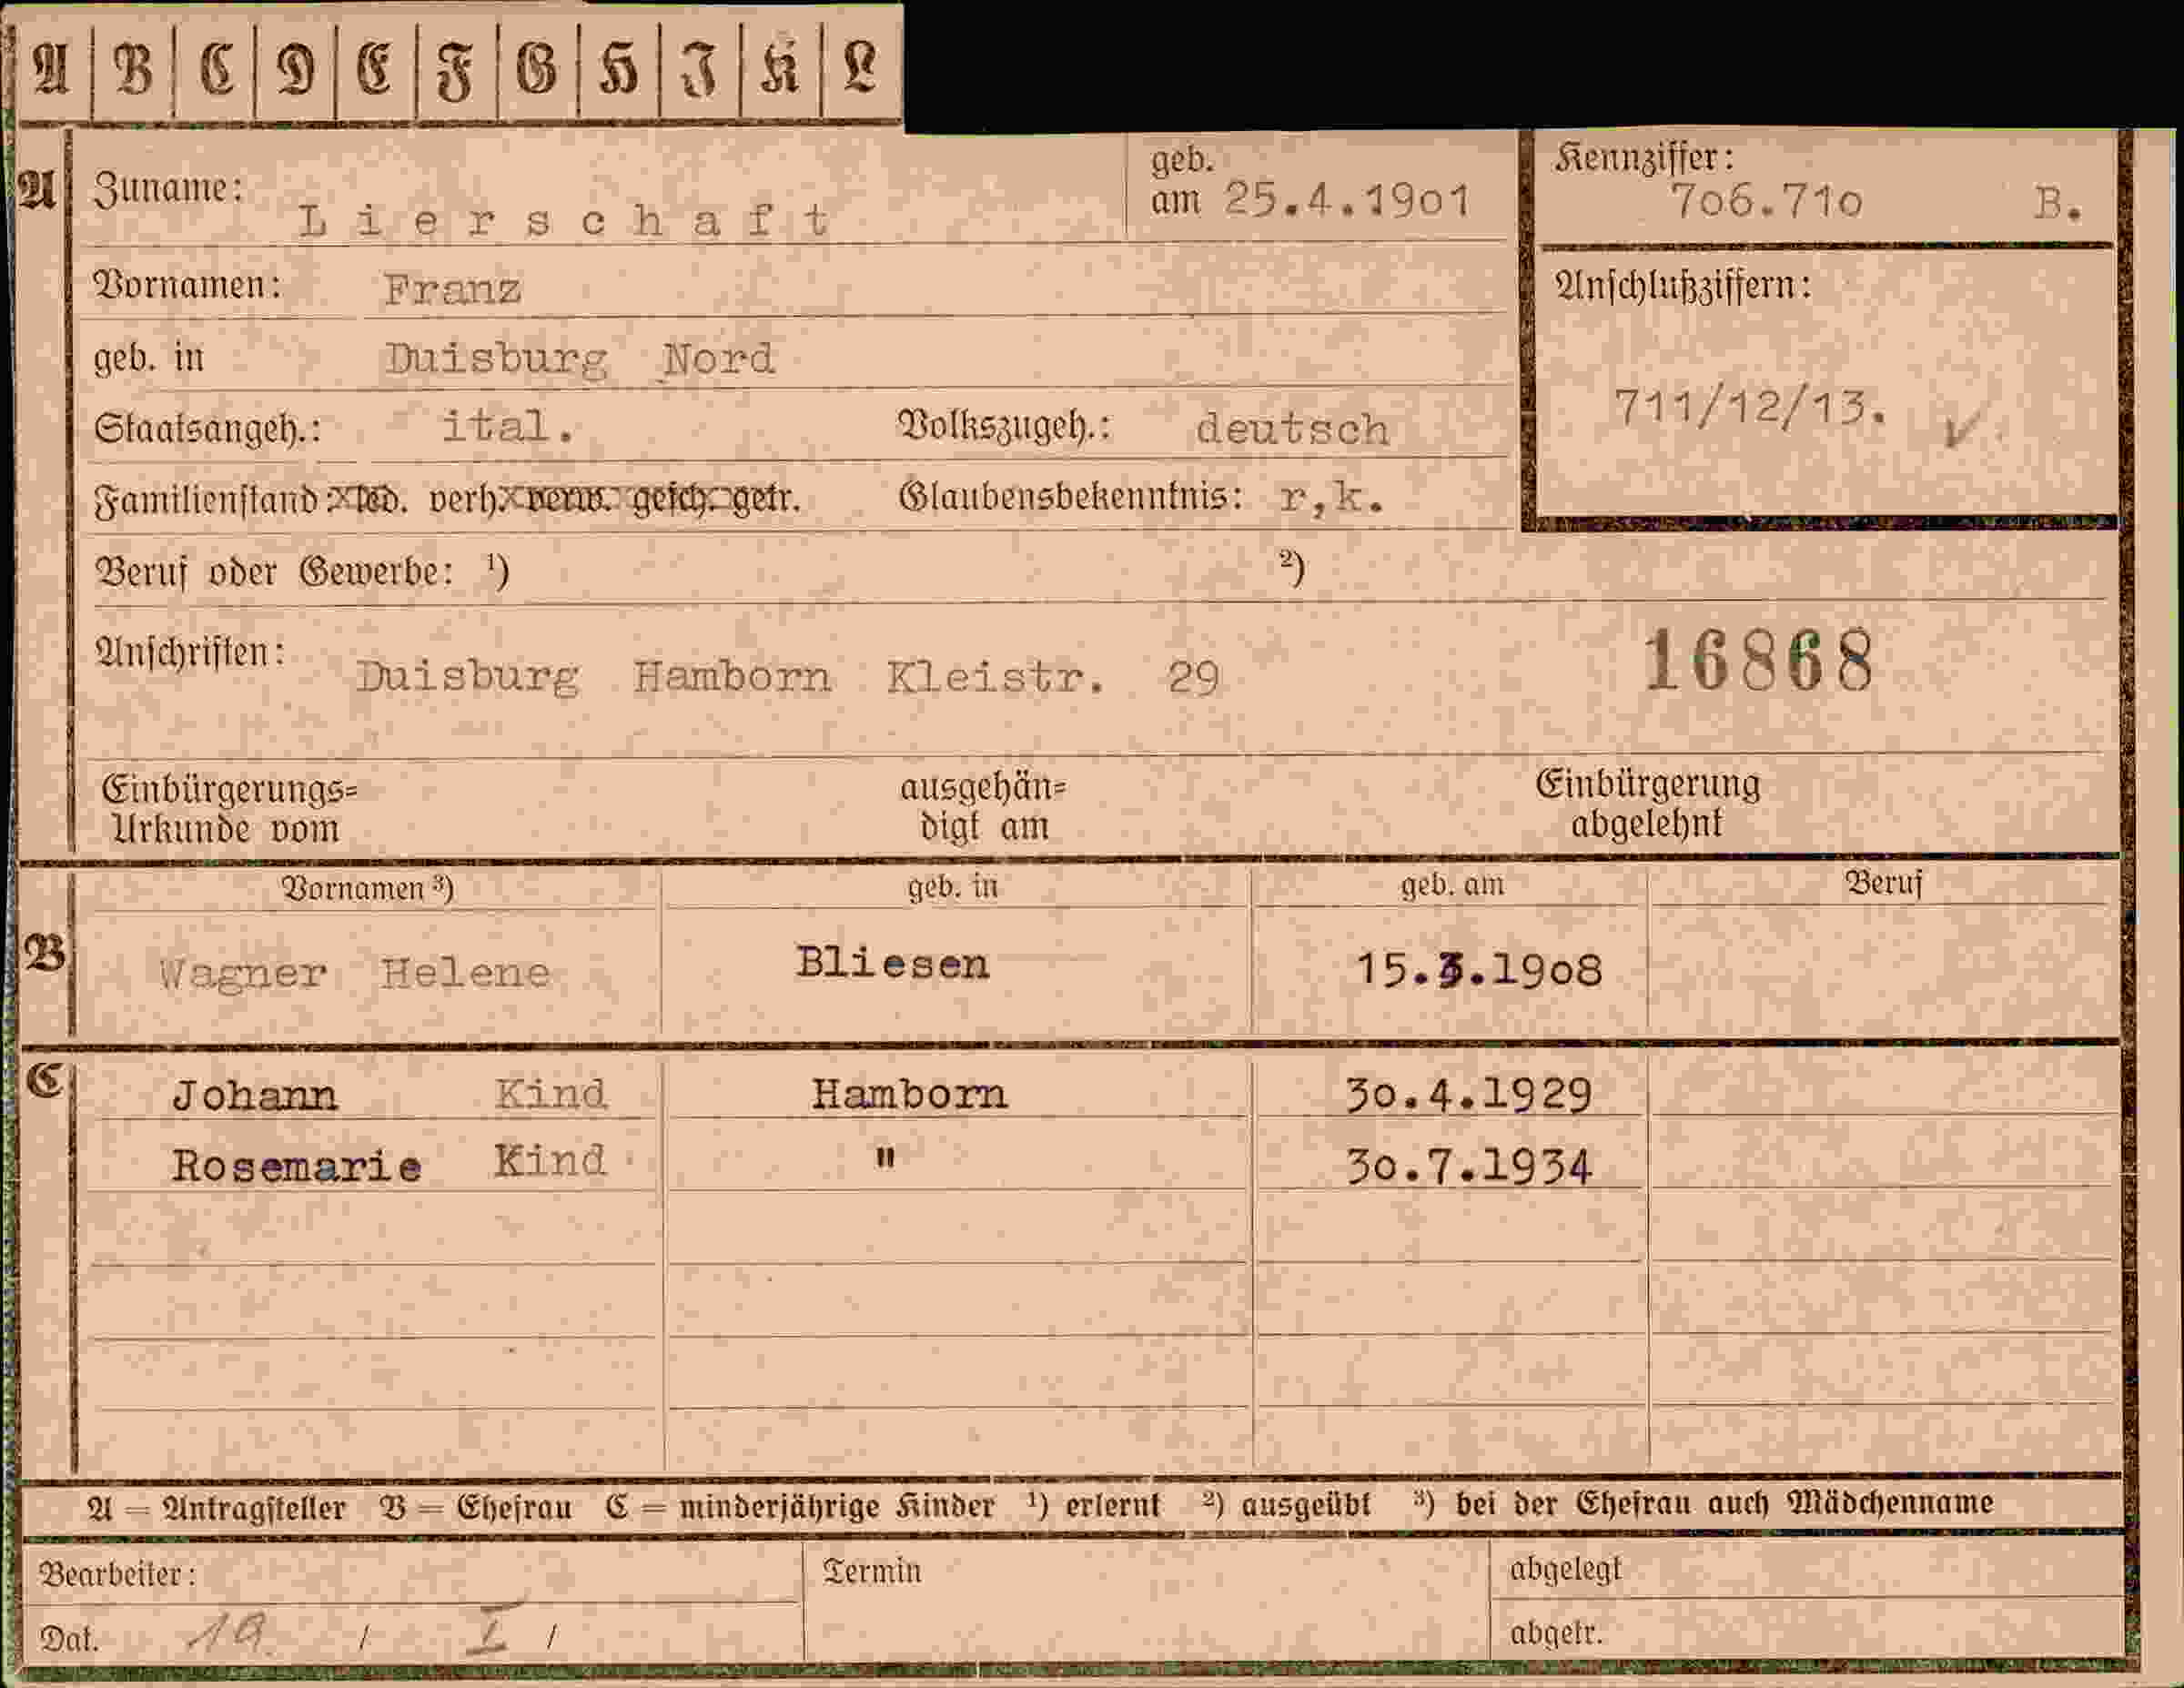 A B C D E F G H I K L
A Zuname: Lierschaft geb. am 25.4.1901 Kennziffer: 706.710 B.
Vornamen: Franz
Anschlußziffern:
geb. in Duisburg Nord
711/12/13.
Staatsangeh.: ital. Volkszugeh.: deutsch
Familienstand: led. verh. verw. gesch. getr. Glaubensbekenntnis: r,k.
Beruf oder Gewerbe: ¹) ²)
Anschriften: Duisburg Hamborn Kleistr. 29 16868
Einbürgerungs= ausgehän= Einbürgerung
Urkunde vom digt am abgelehnt
Vornamen ³) geb. in geb. am Beruf
B Wagner Helene Bliesen 15.3.1908
C Johann Kind Hamborn 30.4.1929
Rosemarie Kind " 30.7.1934
A = Antragsteller B = Ehefrau C = minderjährige Kinder ¹) erlernt ²) ausgeübt ³) bei der Ehefrau auch Mädchenname
Bearbeiter: Termin abgelegt
Dat. 19. / I / abgetr.